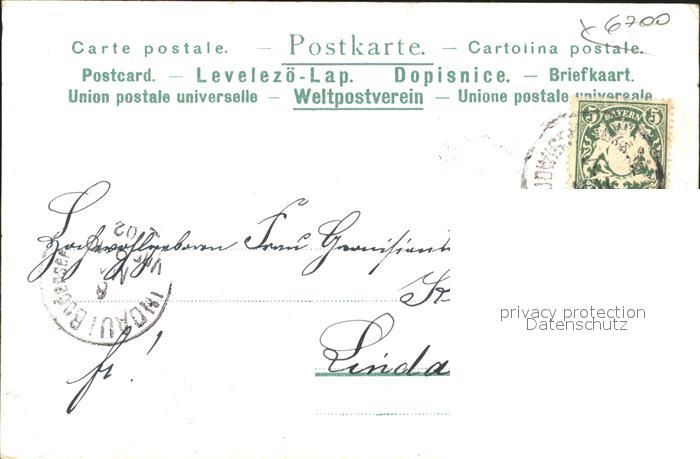 6700
Carte postale. — Postkarte. — Cartolina postale.
Postcard. — Levelezö-Lap. Dopisnice. — Briefkaart.
Union postale universelle — Weltpostverein — Unione postale universale
5 BAYERN 5
Hochwohlgeboren Frau
LINDAU (Bodensee)
02
privacy protection
Datenschutz
Linda
fr!